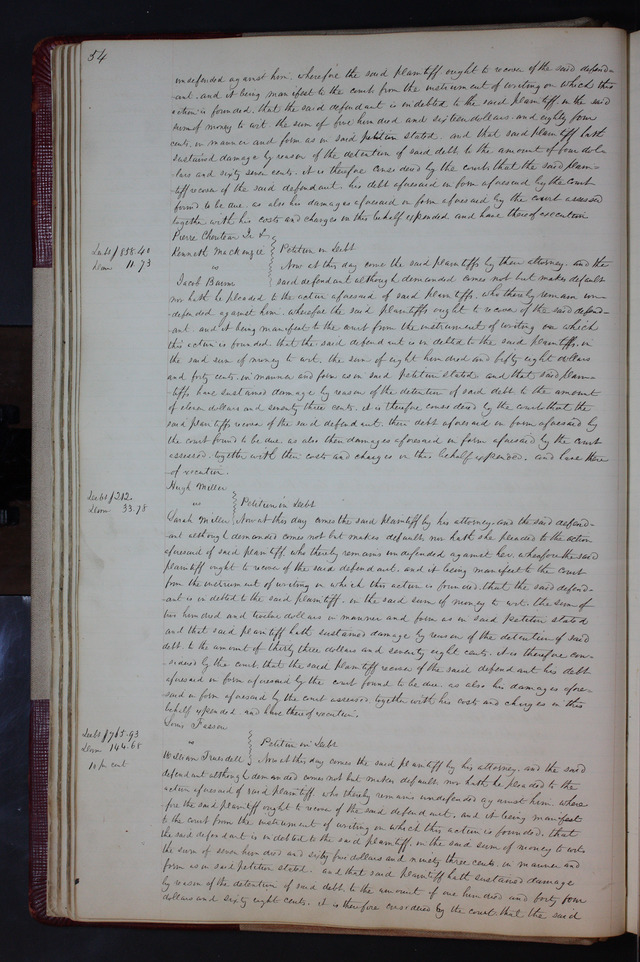 54
undefended against him. wherefore the said plaintiff ought to recover of the said defend-
-ant. and it being manifest to the court from the instrument of writing on which this
action is founded, that the said defendant is indebted to the said plaintiff in the said
sum of money to wit the sum of five hundred and sixteen dollars and eighty four
cents, in manner and form as in said petition stated. and that said plaintiff hath
sustained damage by reason of the detention of said debt to the amount of four dol-
-lars and sixty seven cents. it is therefore considered by the court that the said plain-
tiff recover of the said defendant. his debt aforesaid in form aforesaid by the court
found to be due. as also his damages aforesaid in form aforesaid by the court assessed
together with his costs and charges in this behalf expended and have thereof execution
Pierre Chouteau Jr &
Debt $858.40 Kenneth Mackenzie Petition in Debt
Dam 11.73 vs Now at this day come the said plaintiffs by their attorney. and the
Jacob Baum said defendant although demanded comes not but makes default
nor hath he pleaded to the action aforesaid of said plaintiffs. who thereby remain un-
defended against him. wherefore the said plaintiffs ought to recover of the said defend-
-ant. and it being manifest to the court from the instrument of writing on which
this action is founded. that the said defendant is indebted to the said plaintiffs. in
the said sum of money to wit. the sum of eight hundred and fifty eight dollars
and forty cents. in manner and form as in said petition stated. and that said plain-
-tiffs have sustained damage by reason of the detention of said debt to the amount
of eleven dollars and seventy three cents. it is therefore considered by the court that the
said plaintiffs recover of the said defendant. their debt aforesaid in form aforesaid by
the court found to be due as also their damages aforesaid in form aforesaid by the court
assessed. together with their costs and charges in this behalf expended. and have there
of execution.
Hugh Miller
Debt $212.
Dam 33.78 vs Petition in Debt
Sarah Miller Now at this day comes the said plaintiff by his attorney. and the said defend-
-ant although demanded comes not but makes default. nor hath she pleaded to the action
aforesaid of said plaintiff. who thereby remains undefended against her. wherefore the said
plaintiff ought to recover of the said defendant. and it being manifest to the court
from the instrument of writing on which this action is founded. that the said defend-
-ant is indebted to the said plaintiff. in the said sum of money to wit. the sum of
two hundred and twelve dollars in manner and form as in said petition stated
and that said plaintiff hath sustained damage by reason of the detention of said
debt. to the amount of thirty three dollars and seventy eight cents. it is therefore con-
-sidered by the court. that the said plaintiff recover of the said defendant his debt
aforesaid in form aforesaid by the court found to be due. as also his damages afore-
said in form aforesaid by the court assessed. together with his costs and charges in this
behalf expended and have thereof execution.
Louis
Debt $765.93
Dam 144.68 vs Petition in Debt
10 pr cent William Truesdell Now at this day comes the said plaintiff by his attorney. and the said
defendant although demanded comes not but makes default. nor hath he pleaded to the
action aforesaid of said plaintiff. who thereby remains undefended against him. where-
fore the said plaintiff ought to recover of the said defendant. and it being manifest
to the court from the instrument of writing on which this action is founded. that
the said defendant is indebted to the said plaintiff. in the said sum of money to wit.
the sum of seven hundred and sixty five dollars and ninety three cents. in manner and
form as in said petition stated. and that said plaintiff hath sustained damage
by reason of the detention of said debt. to the amount of one hundred and forty four
dollars and sixty eight cents. it is therefore considered by the court. that the said